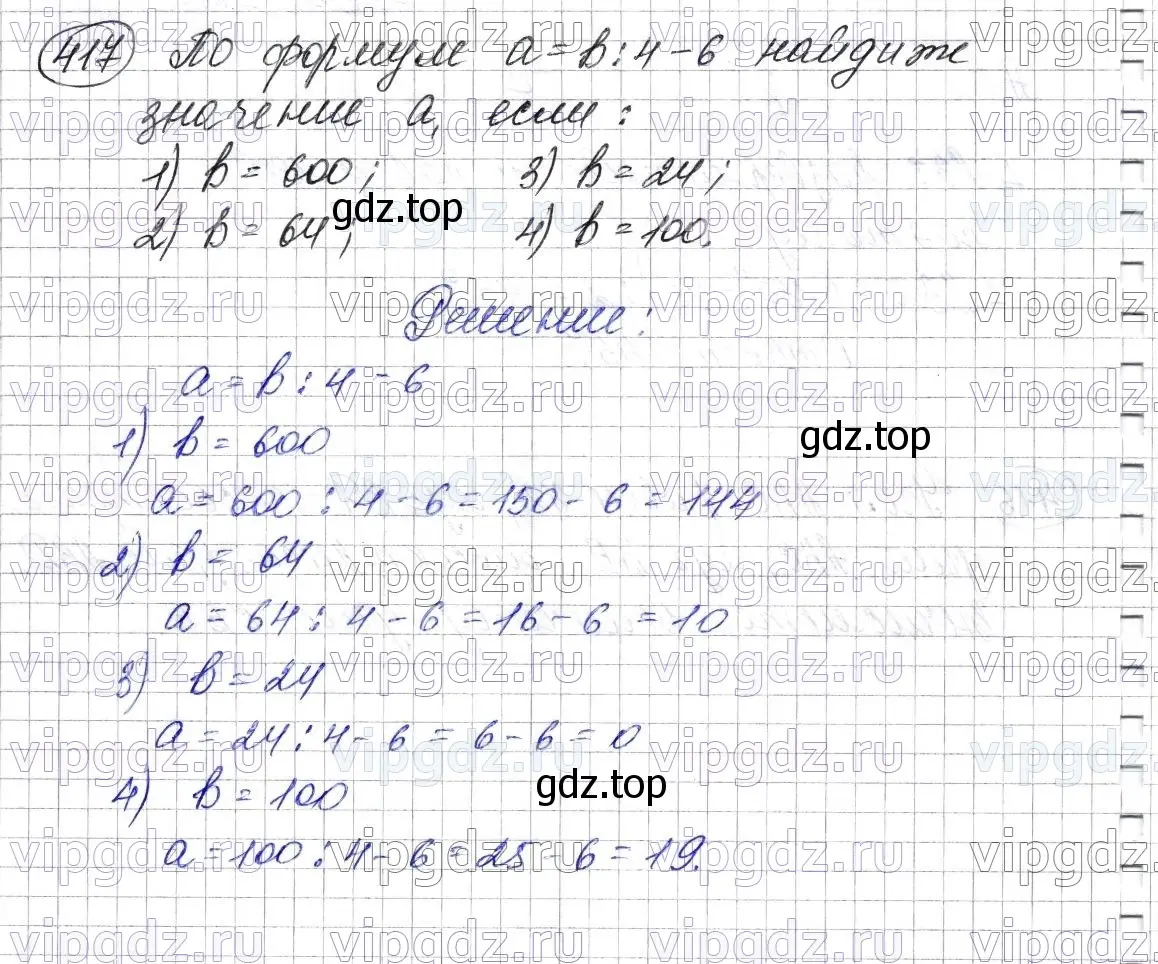 417 По формуле a = b : 4 - 6 найдите
значение a, если:
1) b = 600; 3) b = 24;
2) b = 64; 4) b = 100.
gdz.top
Решение:
a = b : 4 - 6
1) b = 600
gdz.top
a = 600 : 4 - 6 = 150 - 6 = 144
2) b = 64
a = 64 : 4 - 6 = 16 - 6 = 10
3) b = 24
a = 24 : 4 - 6 = 6 - 6 = 0
4) b = 100
gdz.top
a = 100 : 4 - 6 = 25 - 6 = 19.
vipgdz.ru